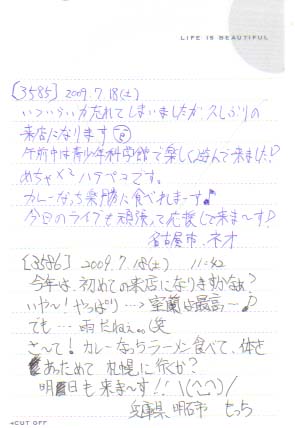 LIFE IS BEAUTIFUL
[3585] 2009.7.18(土)
いついらい力忘れてしまいましたが久しぶりの
来店になります
午前中は青少年科学館で楽しく遊んで来ました♪
めちゃ×2ハラペコです。
カレーなっち楽勝に食べれまーす♪
今日のライブも頑張って応援して来ま〜す!
名古屋市 ネオ
[3586] 2009.7.18(土) 11:42
今年は、初めての来店になりますかなぁ?
いや〜!やっぱり…→室蘭は最高〜♪
でも…雨だねぇ。(笑
さ〜て!カレーなっちラーメン食べて、体を
あっためて札幌に行くか?
明日も来ま〜す!!\(^-^)/
兵庫県明石市 もっち
◂CUT OFF